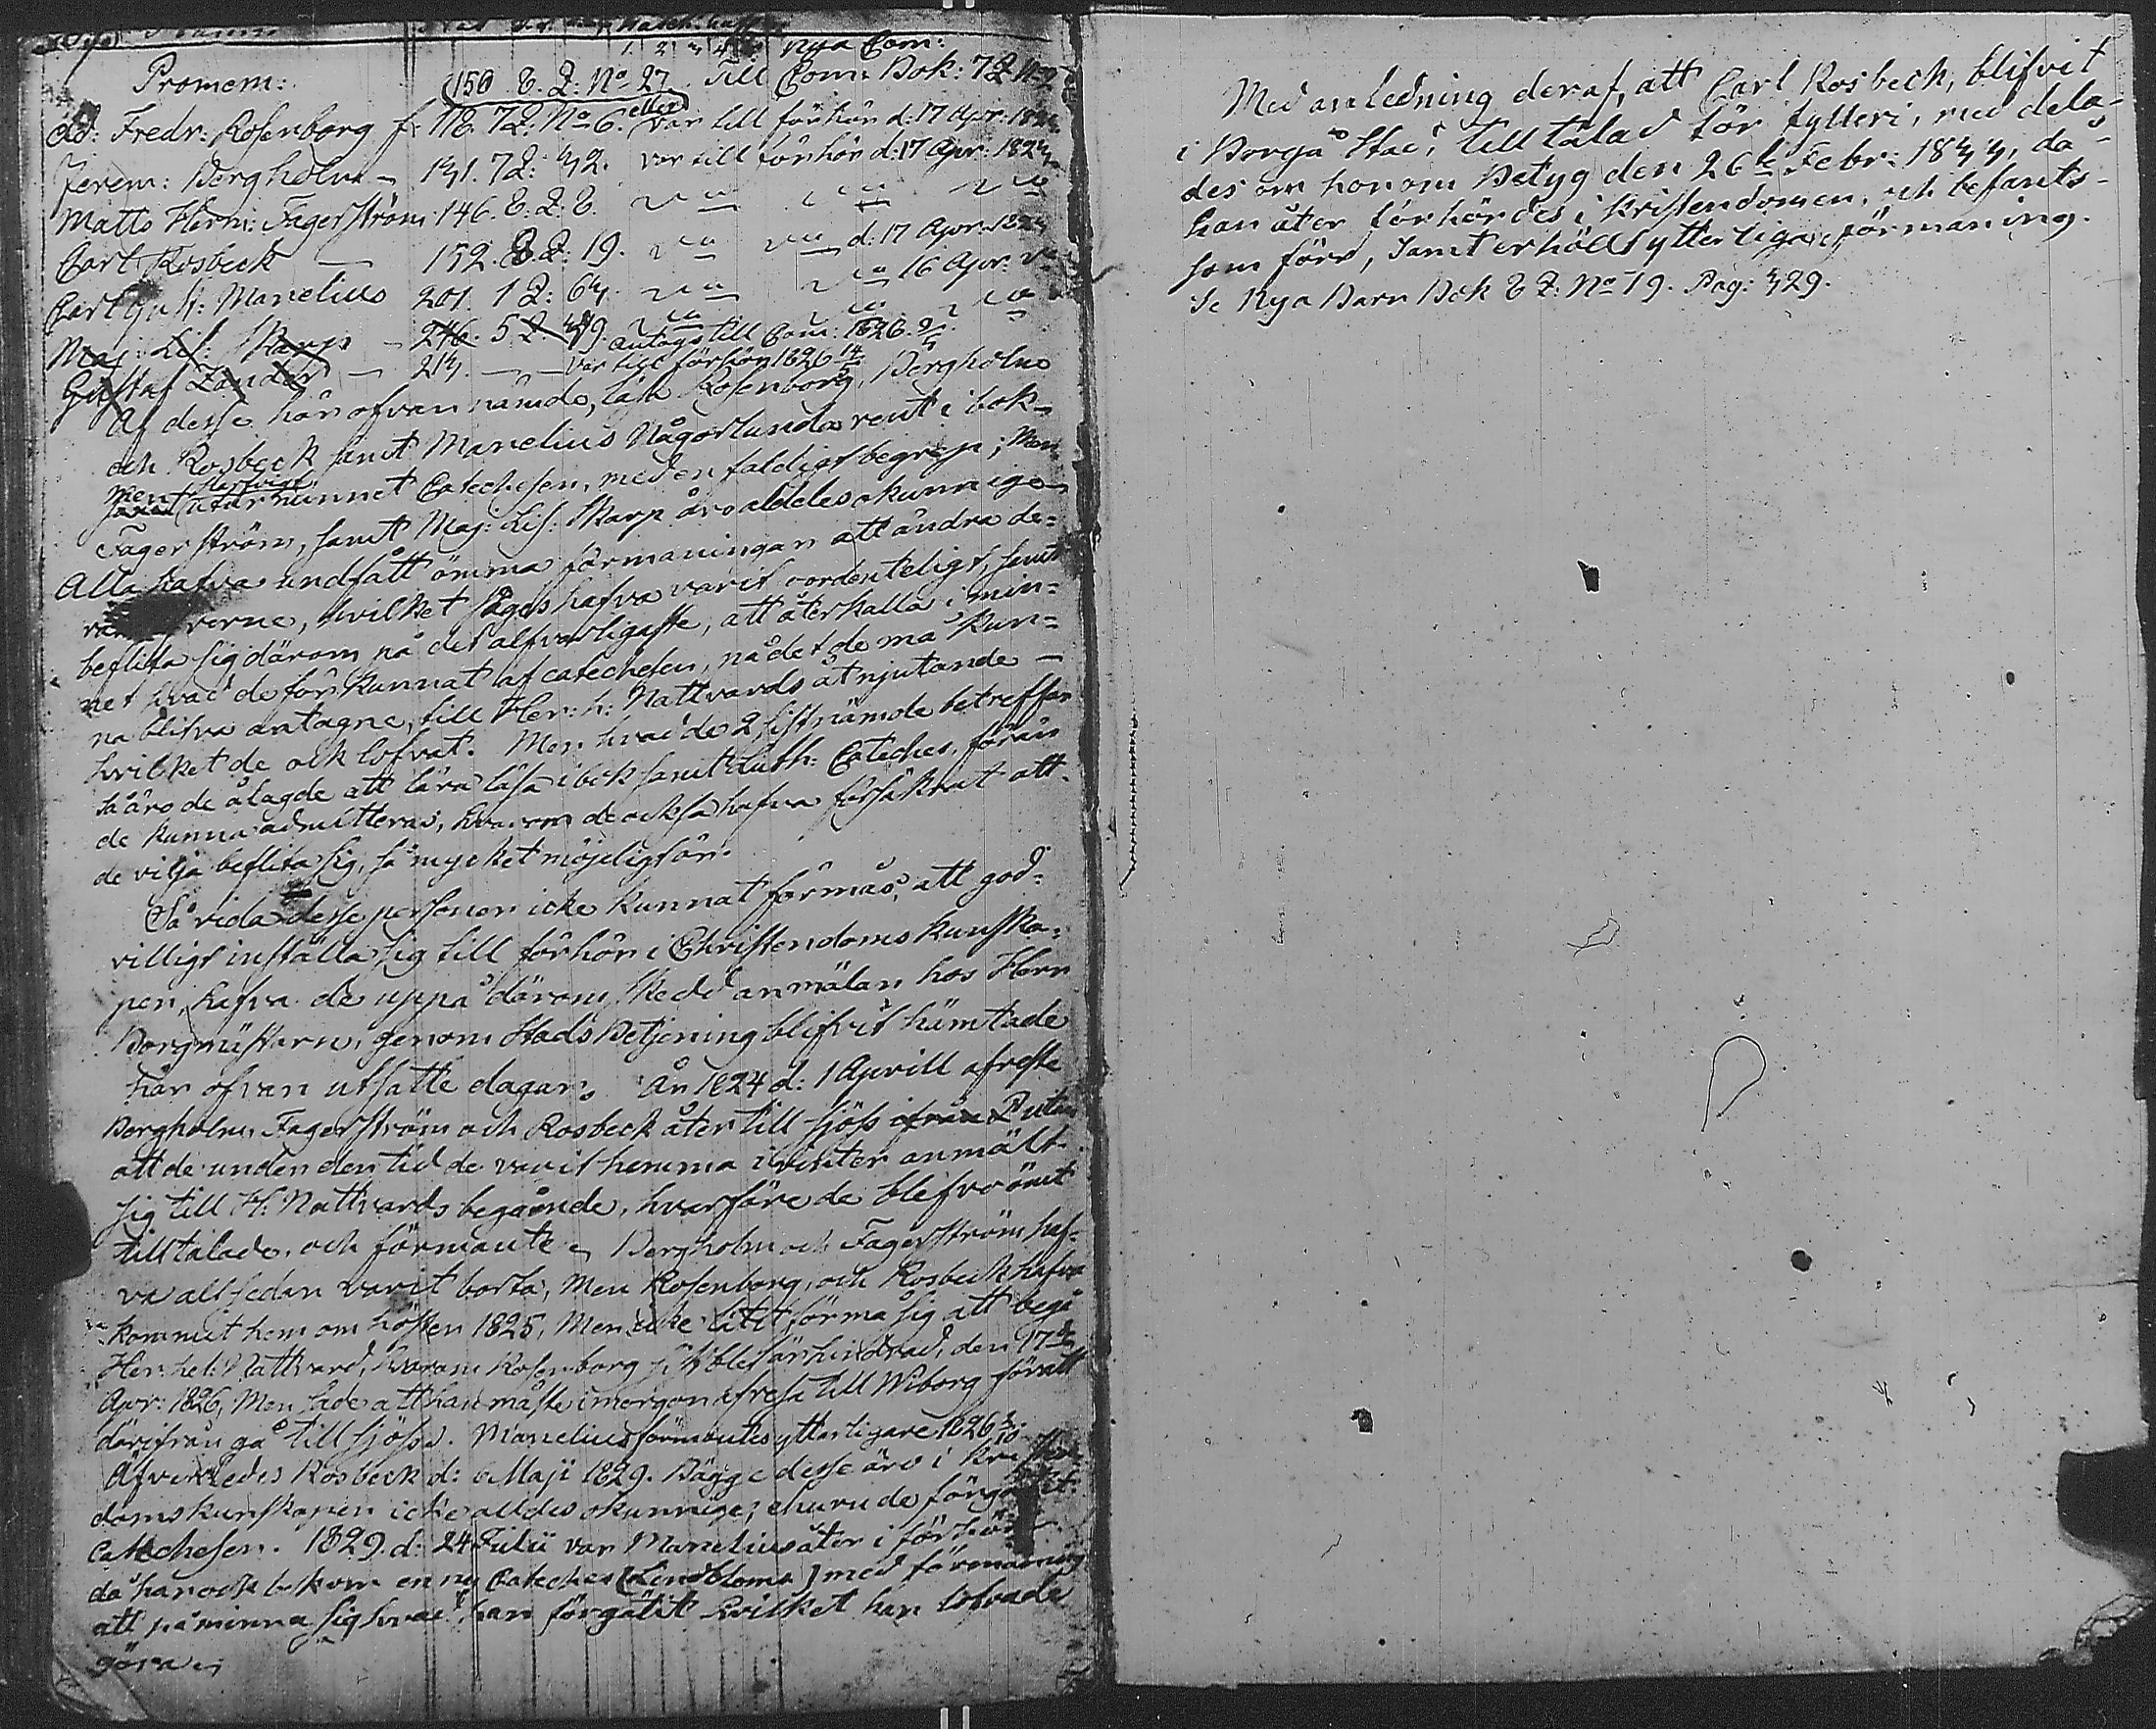 1 2 3 4 nya Com:
Promem: 150. 8. Q: No 27. Till Com: Bok: 7 Q No 2
Ad: Fredr: Rosenborg f: 118. 7Q: No 6. eller var till förhör d: 17 Apr: 1824
Jerem: Bergholm — 141. 7Q: 42. var till förhör d: 17 Apr: 1824
Matts Herm: Fagerström 146. 8. Q: 8.
Carl Rosbeck — 152. 8. Q: 19. d: 17 Apr: 1824
Carl Gust: Manelius 201. 1 Q: 64. 16 Apr:
Maj: Lis: Skarp — 246. 5 Q. 49. antogs till Com: 1826.
Gustaf Zander — 214. — var till förhör 1826
Af desse här ofvan nämde, läsa Rosenborg, Bergholm
och Rosbeck samt Manelius någorlunda rent i bok
men utur minnet Catechesen, med enfaldigt begrep; Men
Fagerström, samt Maj: Lis: Skarp äro aldeles okunnige
Alla hafva undfått ömma förmaningar att ändra de=
verne, hvilket säges hafva varit oordenteligt, samt
beflita sig därom på det alfvarligaste, att återkalla i min=
net hvad de för kunnat af catechesen, på det de må kun=
na blifva antagne, till Her: h: Nattvards åtnjutande —
hvilket de ock lofvat. Men hvad de 2 sistnämde betreffar
så äro de ålagde att lära läsa i bok samt Luth: Catechес, förän
de kunna admitteras, hvarom de också hafva försäkrat att
de vilja beflita sig, så mycket möjeligt är.
Så vida desse personer icke kunnat förmås, att god=
villigt inställa sig till förhör i Christendoms kunska=
pen, hafva de uppå därom skedd anmälan hos Herr
Borgmästaren, genom Stads Betjening blifvit hämtade
här ofvan utsatte dagar. År 1824 d: 1 Aprill afreste
Bergholm, Fagerström och Rosbeck åter till sjöss utan
att de under den tid de varit hemma i vinter anmält
sig till H: Nattvards begående, hvarföre de blefvo ömt
tilltalade, och förmante. Bergholm och Fagerström haf=
va allt sedan varit borta, Men Rosenborg, och Rosbeck hafva
kommit hem om hösten 1825, Men icke låtit förmå sig att begå
Her: hel: Nattvard, hvarom Rosenborg blef ärhindrad, den 17de
Apr: 1826, Men sade att han måste i morgon afresa till Wiborg för att
därifrån gå till sjöss. Manelius förmantes ytterligare 1826 3/10.
Äfvenledes Rosbeck d: 6 Maji 1829. Bägge desse äro i Kristen
domskunskapen icke alldes okunnige, ehuru de förgätit
Catechesen. 1829. d: 24 Julii var Manelius åter i förhör
då han ock bekom en ny Cateches (Lindbloms) med förmaning
att påminna sig hvad han förgätit hvilket han lofvade
göra.
Med anledning deraf, att Carl Rosbeck, blifvit
i Borgå Stad, tilltalad för fylleri, med dela-
des om honom Betyg den 26te Febr: 1844, då
han åter förhördes i Kristendomen, och befants
som förr, samt erhöll ytterligare förmaning.
Se Nya Barn Bok 8 Q: No 19. Pag: 429.